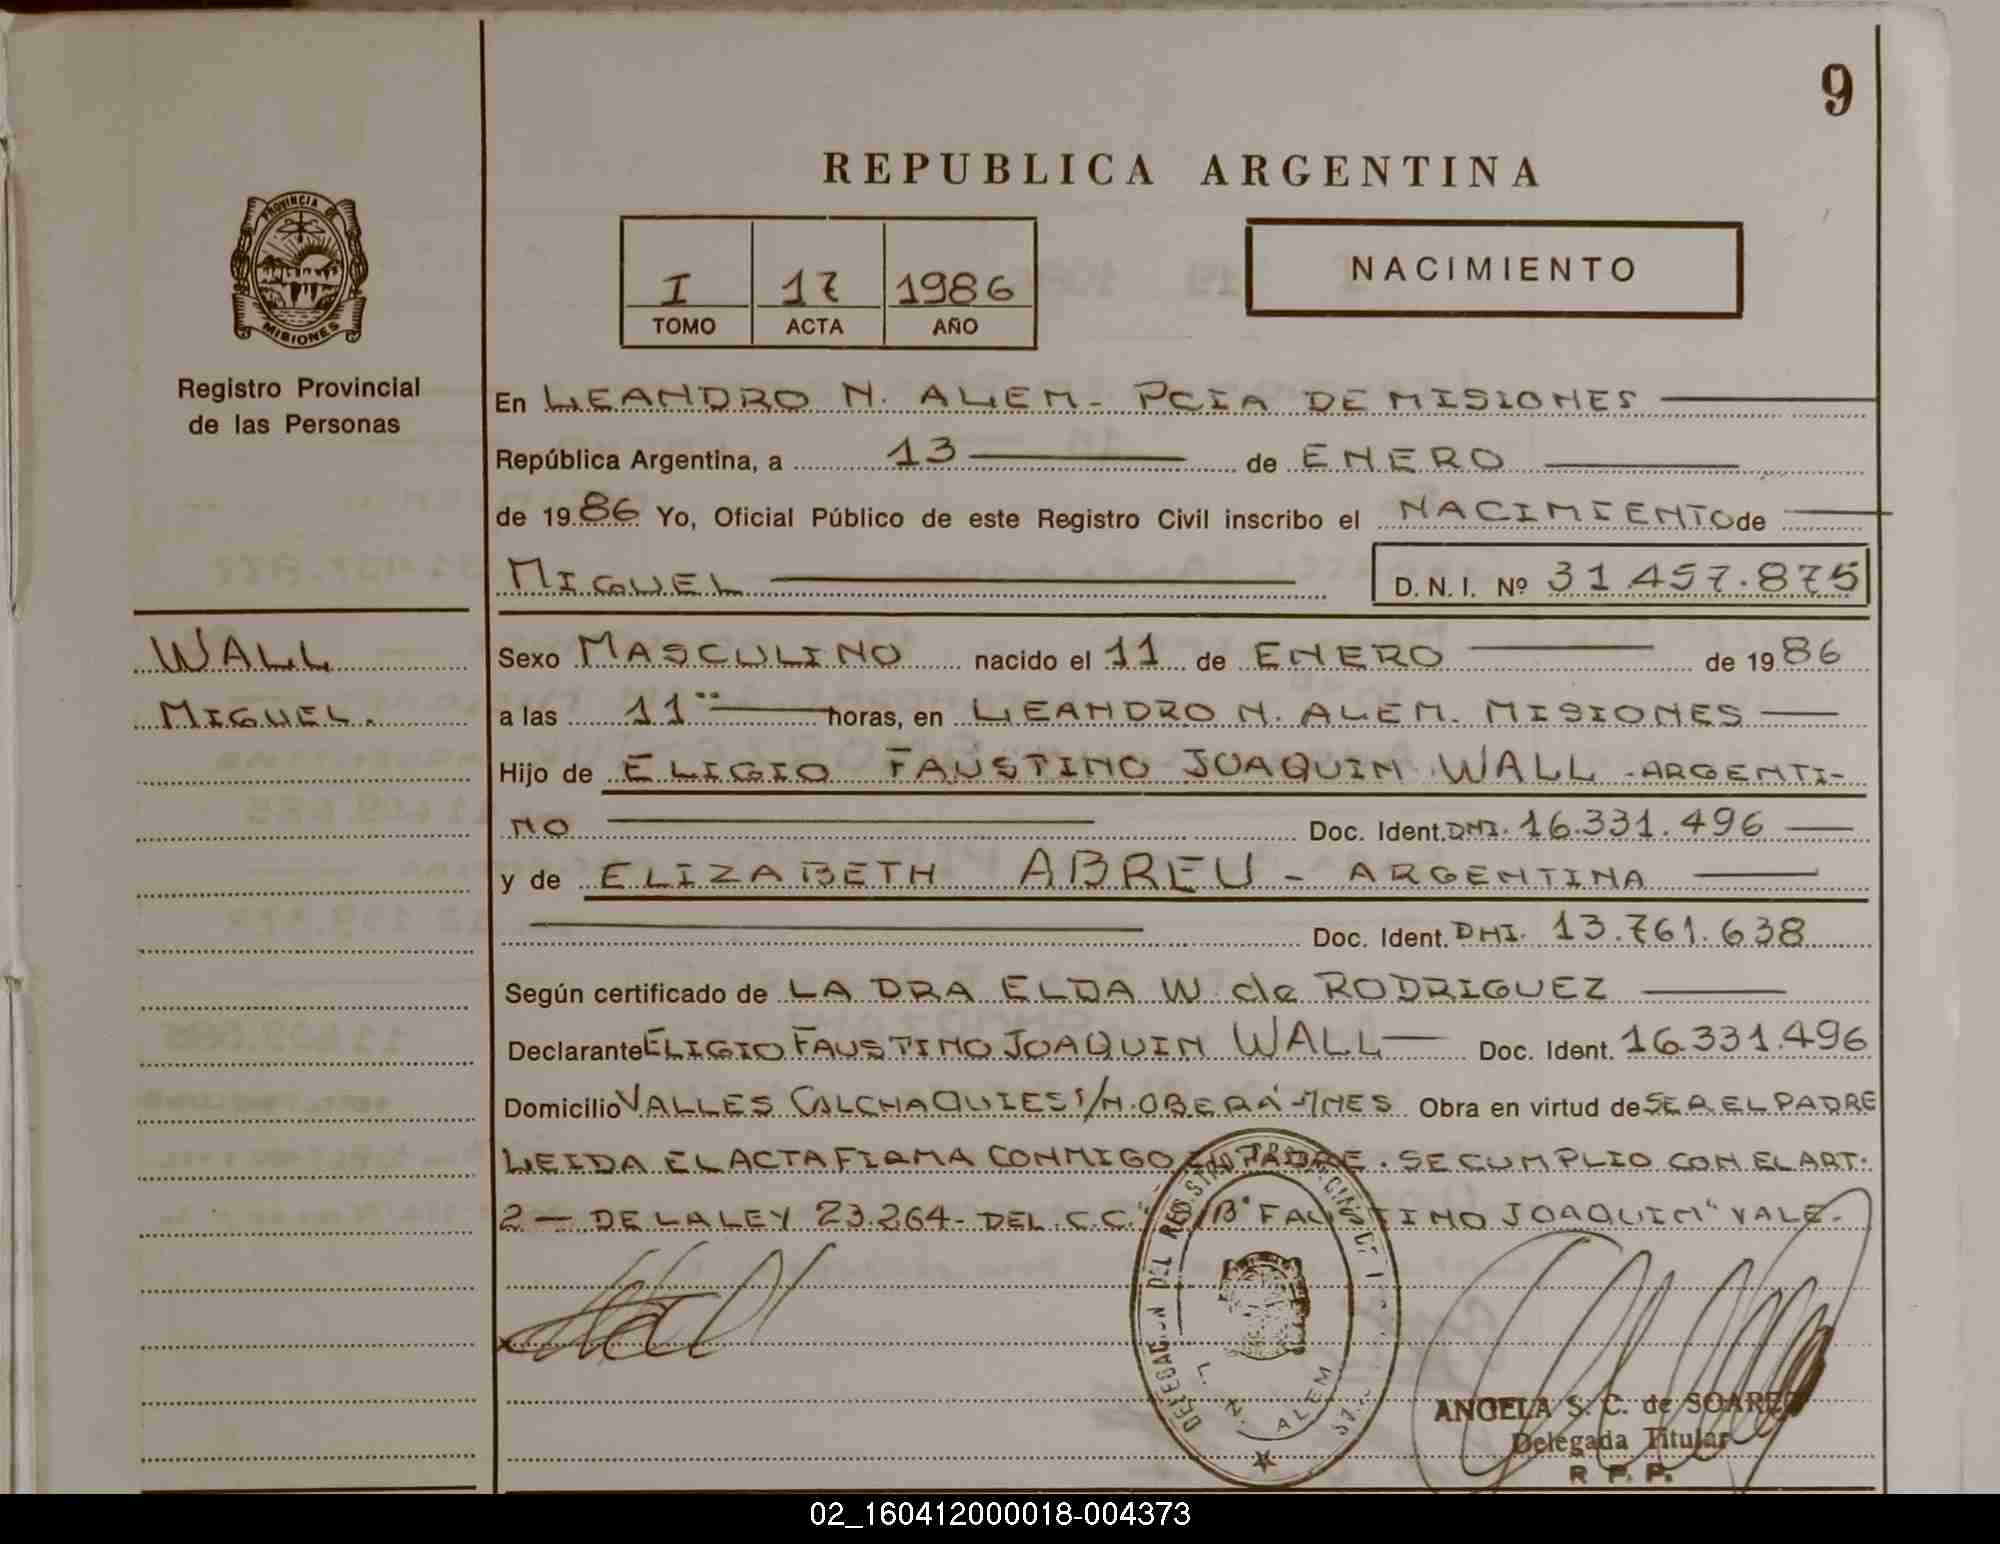 9
REPUBLICA ARGENTINA
PROVINCIA DE
MISIONES
I 17 1986
TOMO ACTA AÑO
NACIMIENTO
Registro Provincial
de las Personas
En LEANDRO N. ALEM - PCIA DE MISIONES
República Argentina, a 13 de ENERO
de 1986 Yo, Oficial Público de este Registro Civil inscribo el NACIMIENTO de
MIGUEL D. N. I. Nº 31.457.875
WALL
MIGUEL.
Sexo MASCULINO nacido el 11 de ENERO de 1986
a las 11 horas, en LEANDRO N. ALEM. MISIONES
Hijo de ELIGIO FAUSTINO JOAQUIN WALL - ARGENTI-
NO Doc. Ident. DNI. 16.331.496
y de ELIZABETH ABREU - ARGENTINA
Doc. Ident. DNI. 13.761.638
Según certificado de LA DRA ELDA W. de RODRIGUEZ
Declarante ELIGIO FAUSTINO JOAQUIN WALL Doc. Ident. 16.331.496
Domicilio VALLES CALCHAQUIES S/N. OBERÁ - MNES Obra en virtud de SER EL PADRE
LEIDA EL ACTA FIRMA CONMIGO PADRE. SE CUMPLIO CON EL ART.
2 - DE LA LEY 23.264 - DEL C.C. "FAUSTINO JOAQUIN" VALE.
DELEGACION DEL REGISTRO
L. N. ALEM
ANGELA S. C. de SOAREZ
Delegada Titular
R P. P.
02_160412000018-004373